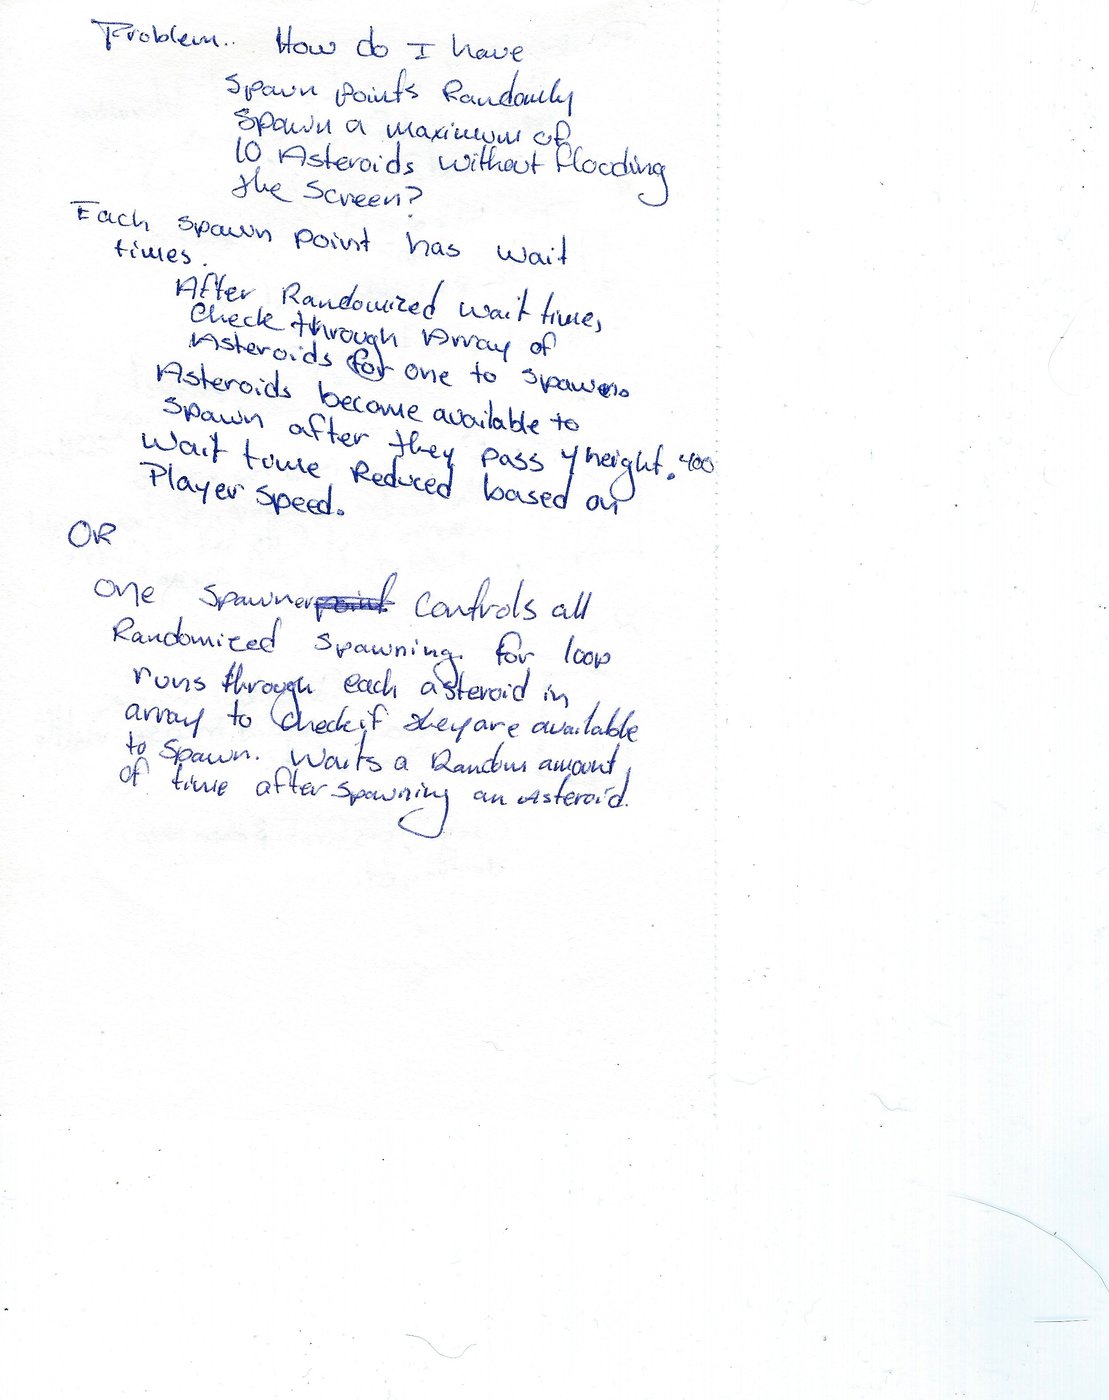 Problem.. How do I have
Spawn points Randomly
Spawn a maximum of
10 Asteroids without flooding
the Screen?
Each spawn point has wait
times.
After Randomized wait time,
Check through Array of
Asteroids for one to spawn.
Asteroids become available to
Spawn after they pass y height. 400
Wait time Reduced based on
Player Speed.
OR
One Spawner point Controls all
Randomized Spawning. for loop
runs through each asteroid in
array to check if they are available
to Spawn. Waits a Random amount
of time after spawning an Asteroid.